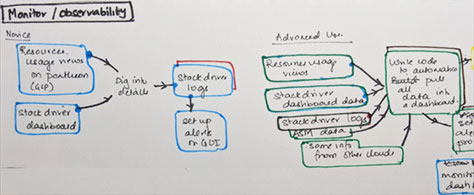 Monitor / observability
Novice
Resources
usage views
on pantheon
(GCP)
Stackdriver
dashboard
Dig into
details
Stackdriver
logs
set up
on GUI
Advanced User
Resources usage
views
Stackdriver
dashboard data
Stackdriver logs
ASM data
same info
from other clouds
Write code
to automation
pull
all
data into
a dashboard
set